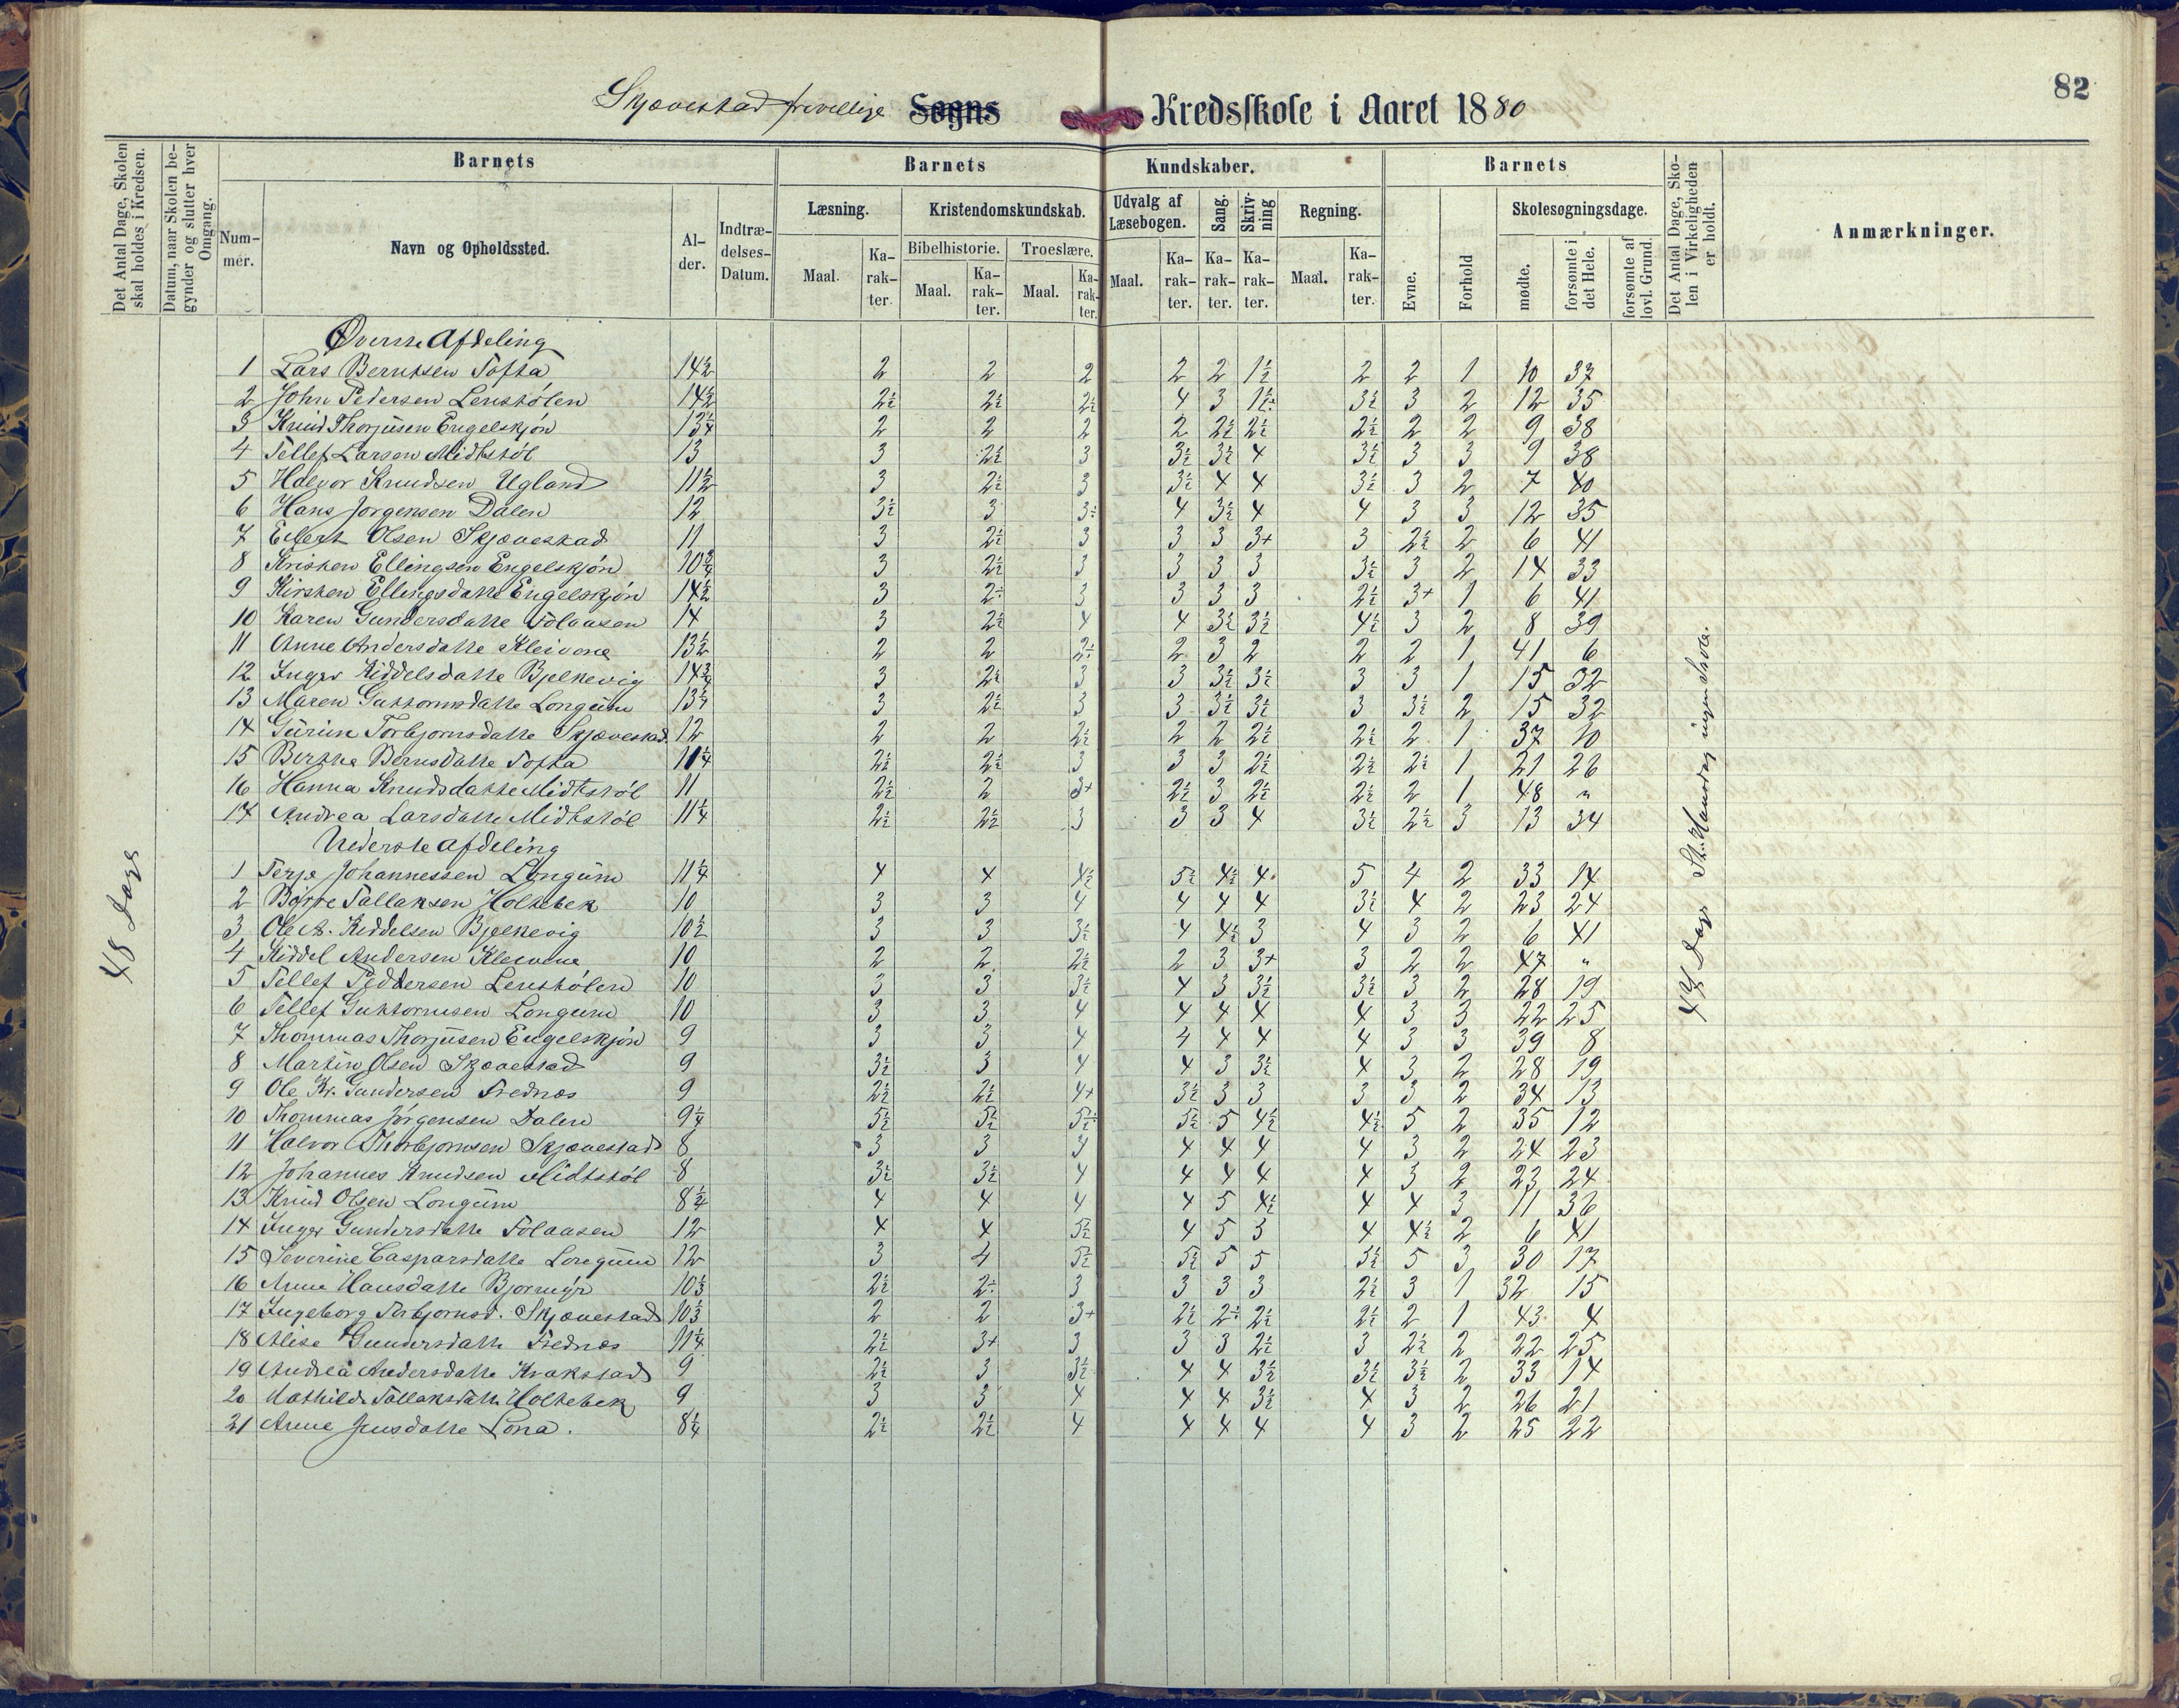 82
Skjævestad frivillige Sogns Kredsskole i Aaret 1880
Det Antal Dage, Skolen skal holdes i Kredsen.
Datum, naar Skolen begynder og slutter hver Omgang.
Barnets
Barnets
Kundskaber.
Barnets
Det Antal Dage, Skolen i Virkeligheden er holdt.
Anmærkninger.
Nummer.
Navn og Opholdssted.
Alder.
Indtrædelses-Datum.
Læsning.
Kristendomskundskab.
Udvalg af Læsebogen.
Sang.
Skrivning
Regning.
Evne.
Forhold
Skolesøgningsdage.
Bibelhistorie.
Troeslære.
Maal.
Karakter.
Maal.
Karakter.
Maal.
Karakter.
Maal.
Karakter.
Karakter.
Karakter.
Maal.
Karakter.
mødte.
forsømte i det Hele.
forsømte af lovl. Grund.
48 Dage
47 Dage St. Hansdag ingen Skole.
Øverste Afdeling
1 Lars Berntsen Tofta 14½ 2 2 2 2 2 1½ 2 2 1 10 37
2 John Pedersen Lenstølen 14½ 2½ 2½ 2½ 4 3 1½ 3½ 3 2 12 35
3 Knud Thorjusen Engelskjøn 13¼ 2 2 2 2 2½ 2½ 2½ 2 2 9 38
4 Tellef Larsen Midtstøl 13 3 2½ 3 3½ 3½ 4 3½ 3 3 9 38
5 Halvor Knudsen Ugland 11½ 3 2½ 3 3½ 4 4 3½ 3 2 7 40
6 Hans Jørgensen Dalen 12 3½ 3 3÷ 4 3½ 4 4 3 3 12 35
7 Eilert Olsen Skjævestad 11 3 2½ 3 3 3 3+ 3 2½ 2 6 41
8 Kristen Ellingsen Engelskjøn 10¾ 3 2½ 3 3 3 3 3½ 3 2 14 33
9 Kirsten Ellingsdatte Engelskjøn 14½ 3 2÷ 3 3 3 3 2½ 3+ 1 6 41
10 Karen Gundersdatte Solaasen 14 3 2½ 4 4 3½ 3½ 4½ 3 2 8 39
11 Anne Andersdatte Kleivene 13½ 2 2 2÷ 2 3 2 2 2 1 41 6
12 Inger Kiddelsdatte Bjelkevig 14¾ 3 2½ 3 3 3½ 3½ 3 3 1 15 32
13 Maren Guttormsdatte Longum 13¼ 3 2½ 3 3 3½ 3½ 3 3½ 2 15 32
14 Gurine Torbjørnsdatte Skjævestad 12 2 2 2½ 2 2 2½ 2½ 2 1 37 10
15 Berthe Berntsdatte Tofta 11¼ 2½ 2½ 3 3 3 2½ 2½ 2½ 1 21 26
16 Hanna Knudsdatte Midtstøl 11 2½ 2 3+ 2½ 3 2½ 2½ 2 1 48 "
17 Andrea Larsdatte Midtstøl 11¼ 2½ 2½ 3 3 3 4 3½ 2½ 3 13 34
Nederste Afdeling
1 Terje Johannessen Longum 11¼ 4 4 4½ 5½ 4½ 4 5 4 2 33 14
2 Børre Tallaksen Holtebek 10 3 3 4 4 4 4 3½ 4 2 23 24
3 Ole A. Kiddelsen Bjelkevig 10½ 3 3 3½ 4 4½ 3 4 3 2 6 41
4 Kiddel Andersen Kleivene 10 2 2 2½ 2 3 3+ 3 2 2 47 "
5 Tellef Peddersen Lenstølen 10 3 3 3½ 4 3 3½ 3½ 3 2 28 19
6 Tellef Guttormsen Longum 10 3 3 4 4 4 4 4 3 3 22 25
7 Thommas Thorjusen Engelskjøn 9 3 3 4 4 4 4 4 3 3 39 8
8 Martin Olsen Skjævestad 9 3½ 3 4 4 3 3½ 4 3 2 28 19
9 Ole Kr. Gundersen Frednæs 9 2½ 2½ 4+ 3½ 3 3 3 3 2 34 13
10 Thommas Jørgensen Dalen 9¼ 5½ 5½ 5½ 5½ 5 4½ 4½ 5 2 35 12
11 Halvor Thorbjørnsen Skjævestad 8 3 3 3 4 4 4 4 3 2 24 23
12 Johannes Knudsen Midtstøl 8 3½ 3½ 4 4 4 4 4 3 2 23 24
13 Knud Olsen Longum 8½ 4 4 4 4 5 4½ 4 4 3 11 36
14 Inger Gundersdatte Solaasen 12 4 4 5½ 4 5 3 4 4½ 2 6 41
15 Severine Caspersdatte Longum 12 3 4 5½ 5½ 5 5 5½ 5 3 30 17
16 Anne Hansdatte Bjormyr 10⅓ 2½ 2÷ 3 3 3 3 2½ 3 1 32 15
17 Ingeborg Torbjørnsd. Skjævestad 10⅓ 2 2 3+ 2½ 2÷ 2½ 2½ 2 1 43 4
18 Alise Gundersdatte Frednæs 11¼ 2½ 3+ 3 3 3 2½ 3 2½ 2 22 25
19 Andrea Andersdatte Krakstad 9 2½ 3 3½ 4 4 3½ 3½ 3½ 2 33 14
20 Mathilde Tallaksdatte Holtebek 9 3 3 4 4 4 3½ 4 3 2 26 21
21 Anne Jensdatte Lona. 8¼ 2½ 2½ 4 4 4 4 4 3 2 25 22